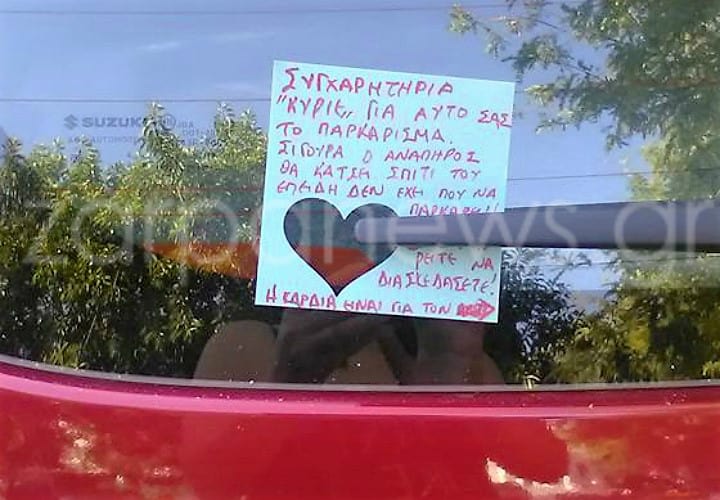 ΣΥΓΧΑΡΗΤΗΡΙΑ
"ΚΥΡΙΕ,, ΓΙΑ ΑΥΤΟ ΣΑΣ
ΤΟ ΠΑΡΚΑΡΙΣΜΑ.
ΣΙΓΟΥΡΑ Ο ΑΝΑΠΗΡΟΣ
ΘΑ ΚΑΤΣΕΙ ΣΠΙΤΙ ΤΟΥ
ΕΠΕΙΔΗ ΔΕΝ ΕΧΕΙ ΠΟΥ ΝΑ
ΠΑΡΚΑΡΕΙ!!
ΡΕΙΤΕ ΝΑ
ΔΙΑΣΚΕΔΑΣΕΤΕ!
Η ΚΑΡΔΙΑ ΕΙΝΑΙ ΓΙΑ ΤΟΝ
SUZUKI
zarpanews.gr